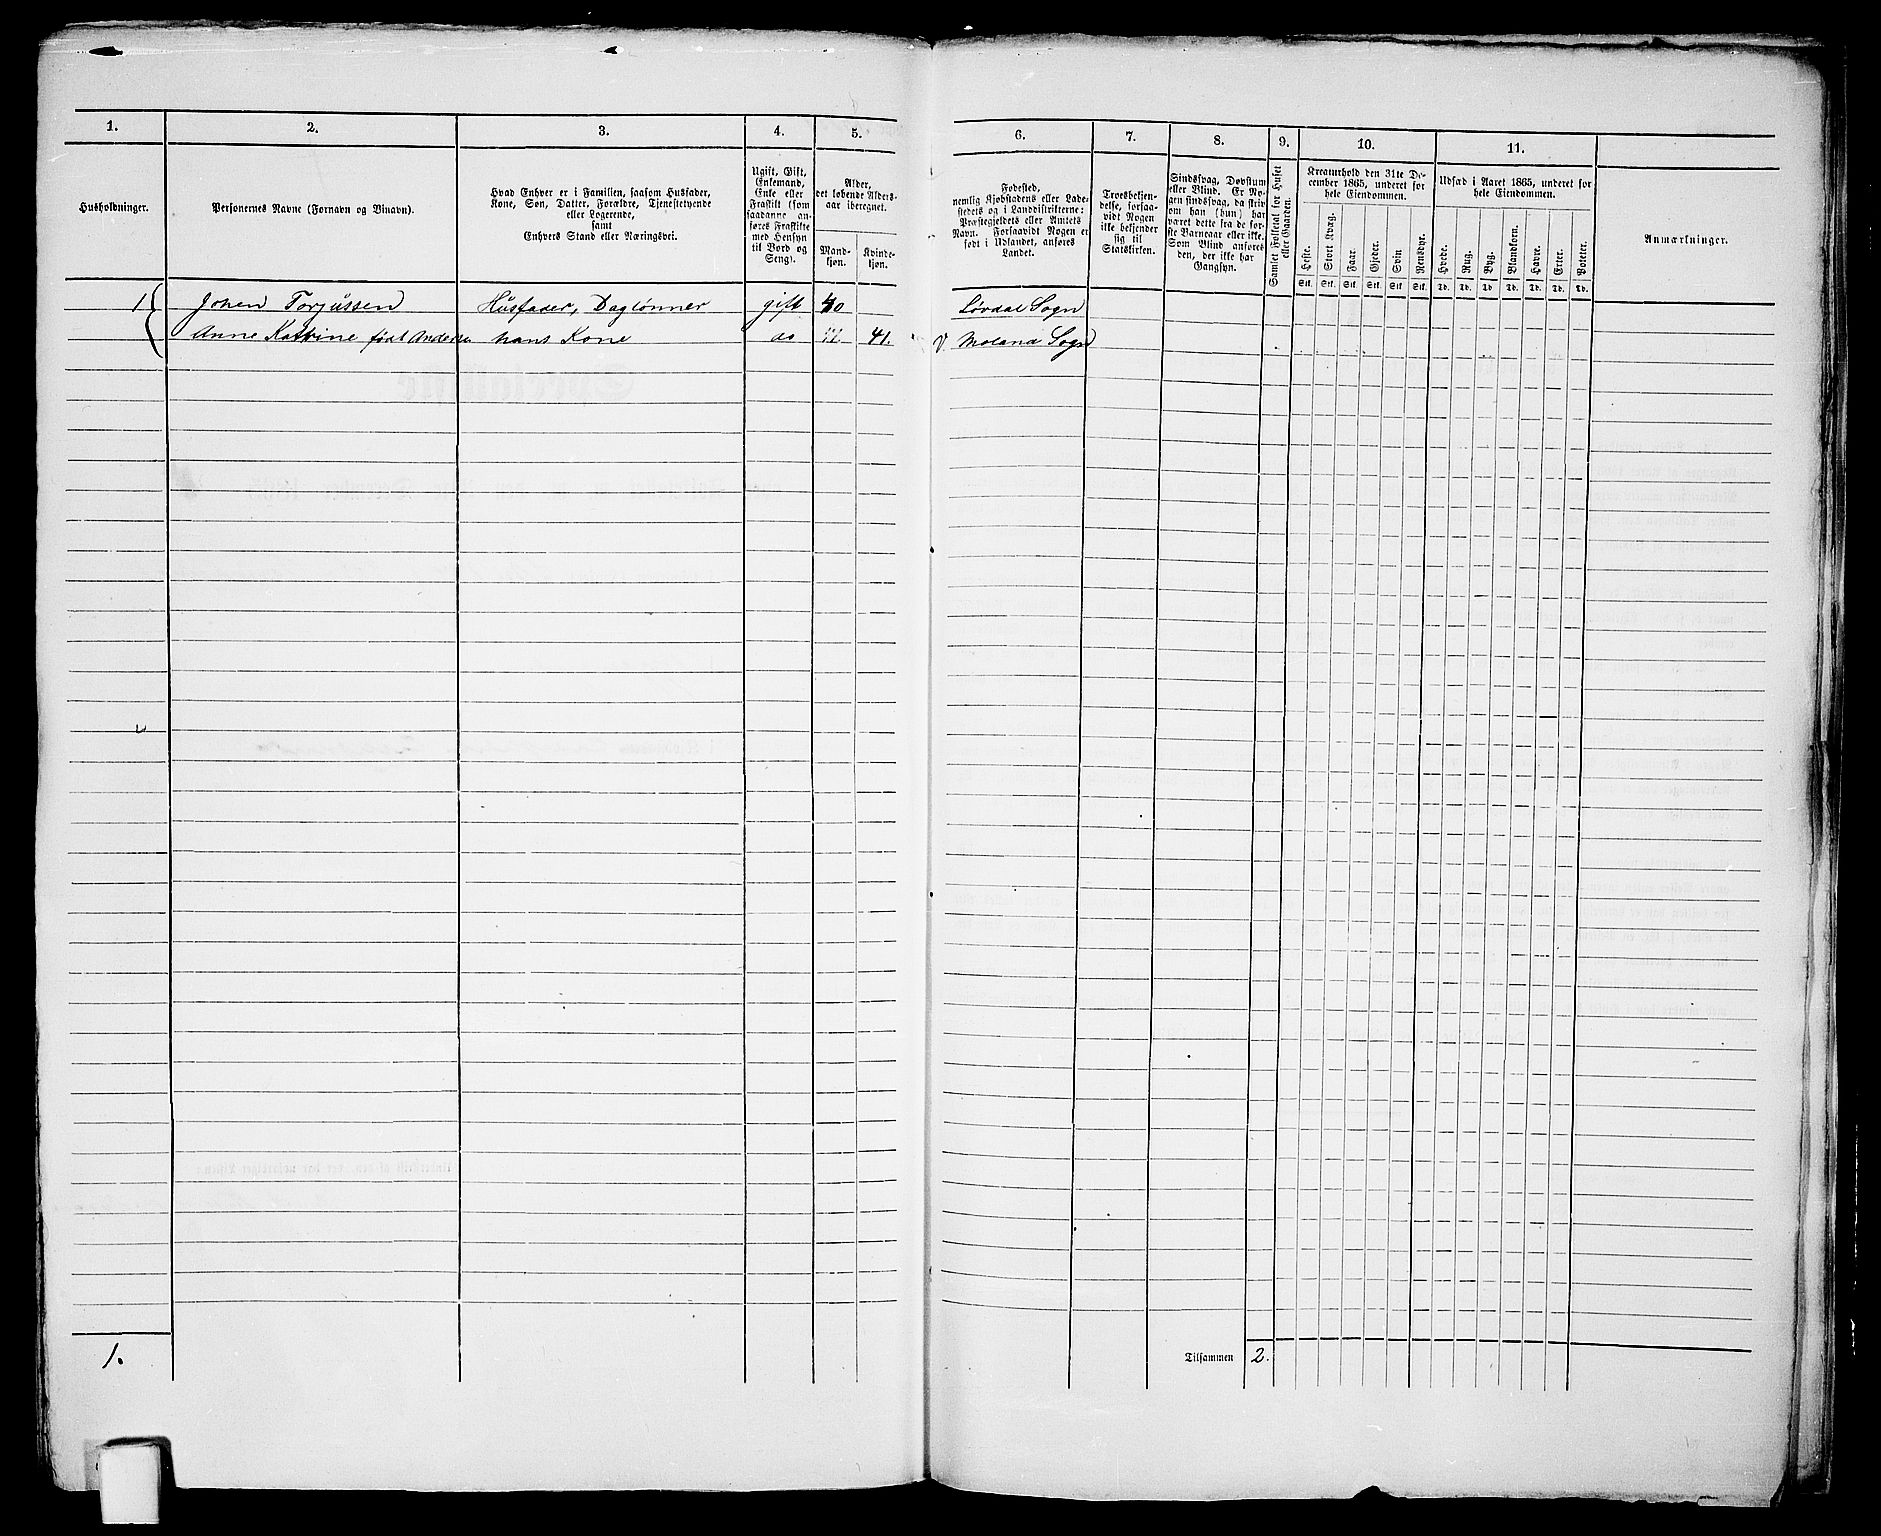 1. 2. 3. 4. 5. 6. 7. 8. 9. 10. 11.
Husholdninger.
Personernes Navne (Fornavn og Binavn).
Hvad Enhver er i Familien, saasom Husfader,
Kone, Søn, Datter, Forældre, Tjenestetyende
eller Logerende,
samt
Enhvers Stand eller Næringsvei.
Ugift, Gift,
Enkemand,
Enke eller
Fraskilt (som
saadanne an-
føres Fraskilte
med Hensyn
til Bord og
Seng).
Alder,
det løbende Alders-
aar iberegnet.
Mand-
kjøn.
Kvinde-
kjøn.
Fødested,
nemlig Kjøbstadens eller Lade-
stedets og i Landdistrikterne:
Præstegjeldets eller Amtets
Navn. Forsaavidt Nogen er
født i Udlandet, anføres
Landet.
Troesbekjen-
delse, forsaa-
vidt Nogen
ikke bekjender
sig til
Statskirken.
Sindssvag, Døvstum
eller Blind. Er No-
gen sindssvag, da skriv
om han (hun) har
været dette fra de før-
ste Barneaar eller ikke.
Som Blind anføres
den, der ikke har
Gangsyn.
Samlet Folketal for Huset
eller Gaarden.
Kreaturhold den 31te De-
cember 1865, underet for
hele Eiendommen.
Heste. Stort Kvæg. Faar. Gjeder. Svin Rensdyr.
Stk. Stk. Stk. Stk. Stk. Stk.
Udsæd i Aaret 1865, underet for
hele Eiendommen.
Hvede. Rug. Byg. Blandkorn. Havre. Erter. Poteter.
Td. Td. Td Td. Td. Td. Td.
Anmærkninger.
1 Johen Torjussen Husfader, Daglønner gift 40 Løvdal Sogn
Anne Katrine født Andersen hans Kone do 41. Moland Sogn
1. Tilsammen 2.